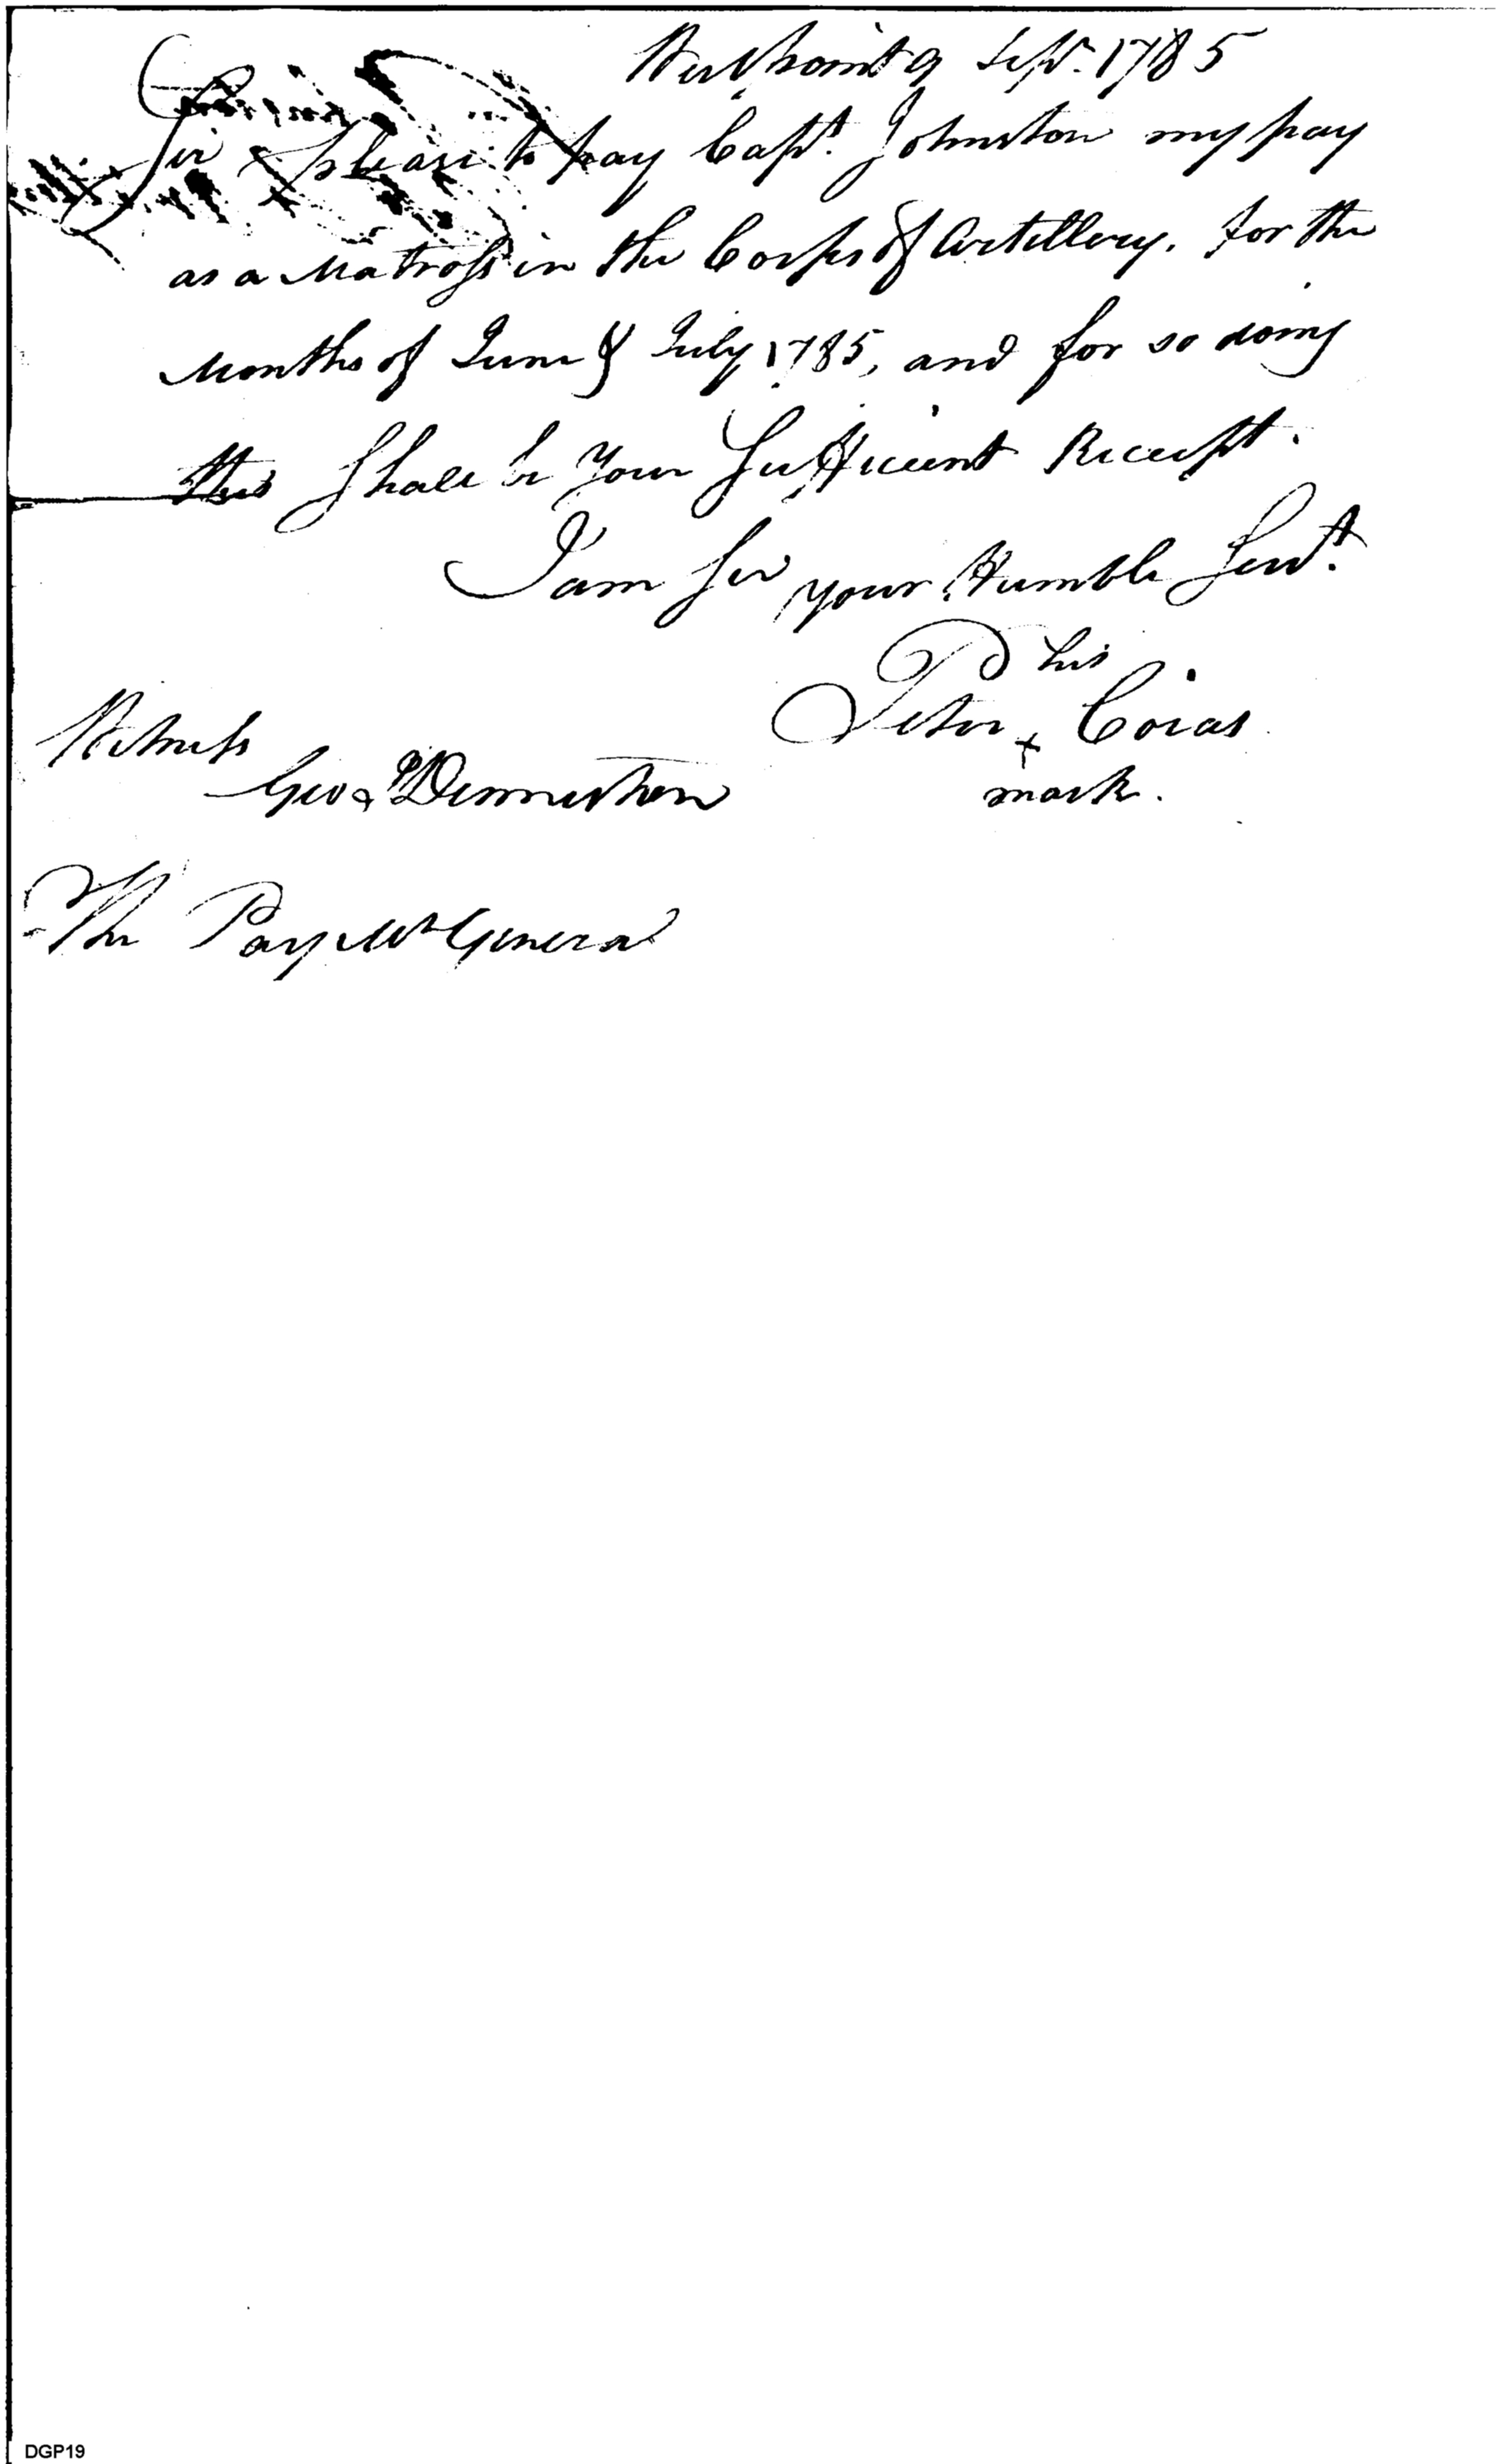 West point 9 Sept. 1785
Sir please to pay Capt. Johnston my pay
as a Matross in the Corps of Artillery, for the
Months of June & July 1785, and for so doing
this shall be your Sufficient Receipt.
I am Sir your Humble Servt.
his
Peter x Coias
mark.
Witness
Geo. Denniston
The Pay Mr General
DGP19